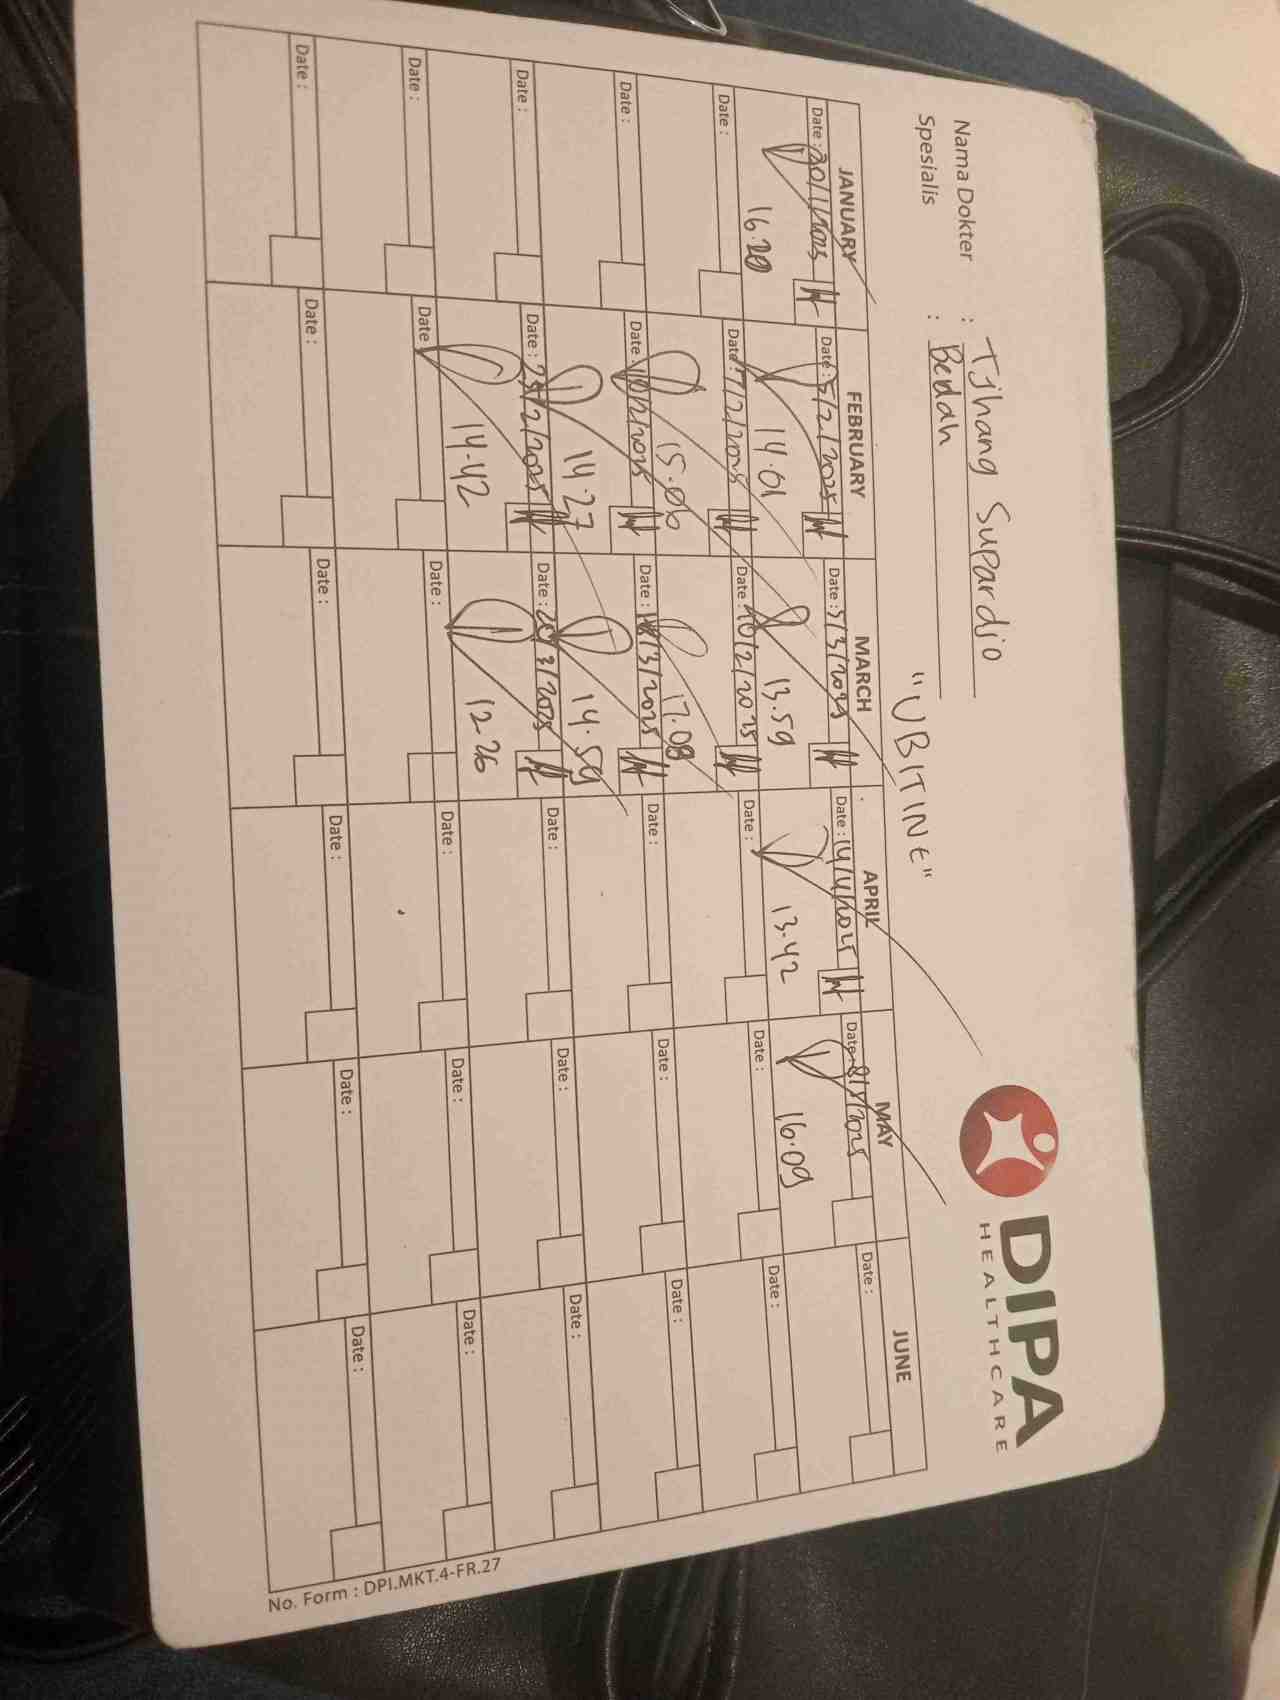 DIPA
HEALTHCARE
Nama Dokter : Tjhang Supardjo
Spesialis : Bedah
"UBITINE"
JANUARY FEBRUARY MARCH APRIL MAY JUNE
Date : 30/1/2025 Date : 5/2/2025 Date : 5/3/2025 Date : 14/4/2025 Date : 8/5/2025 Date :
16.20 14.01 13.59 13.42 16.09
Date : Date : 7/2/2025 Date : 10/2/2025 Date : Date : Date :
15.06 17.08
Date : Date : 10/2/2025 Date : 18/3/2025 Date : Date : Date :
14.27 14.59
Date : Date : 25/2/2025 Date : 20/3/2025 Date : Date : Date :
14.42 12.26
Date : Date Date : Date : Date : Date :
Date : Date : Date : Date : Date : Date :
No. Form : DPI.MKT.4-FR.27